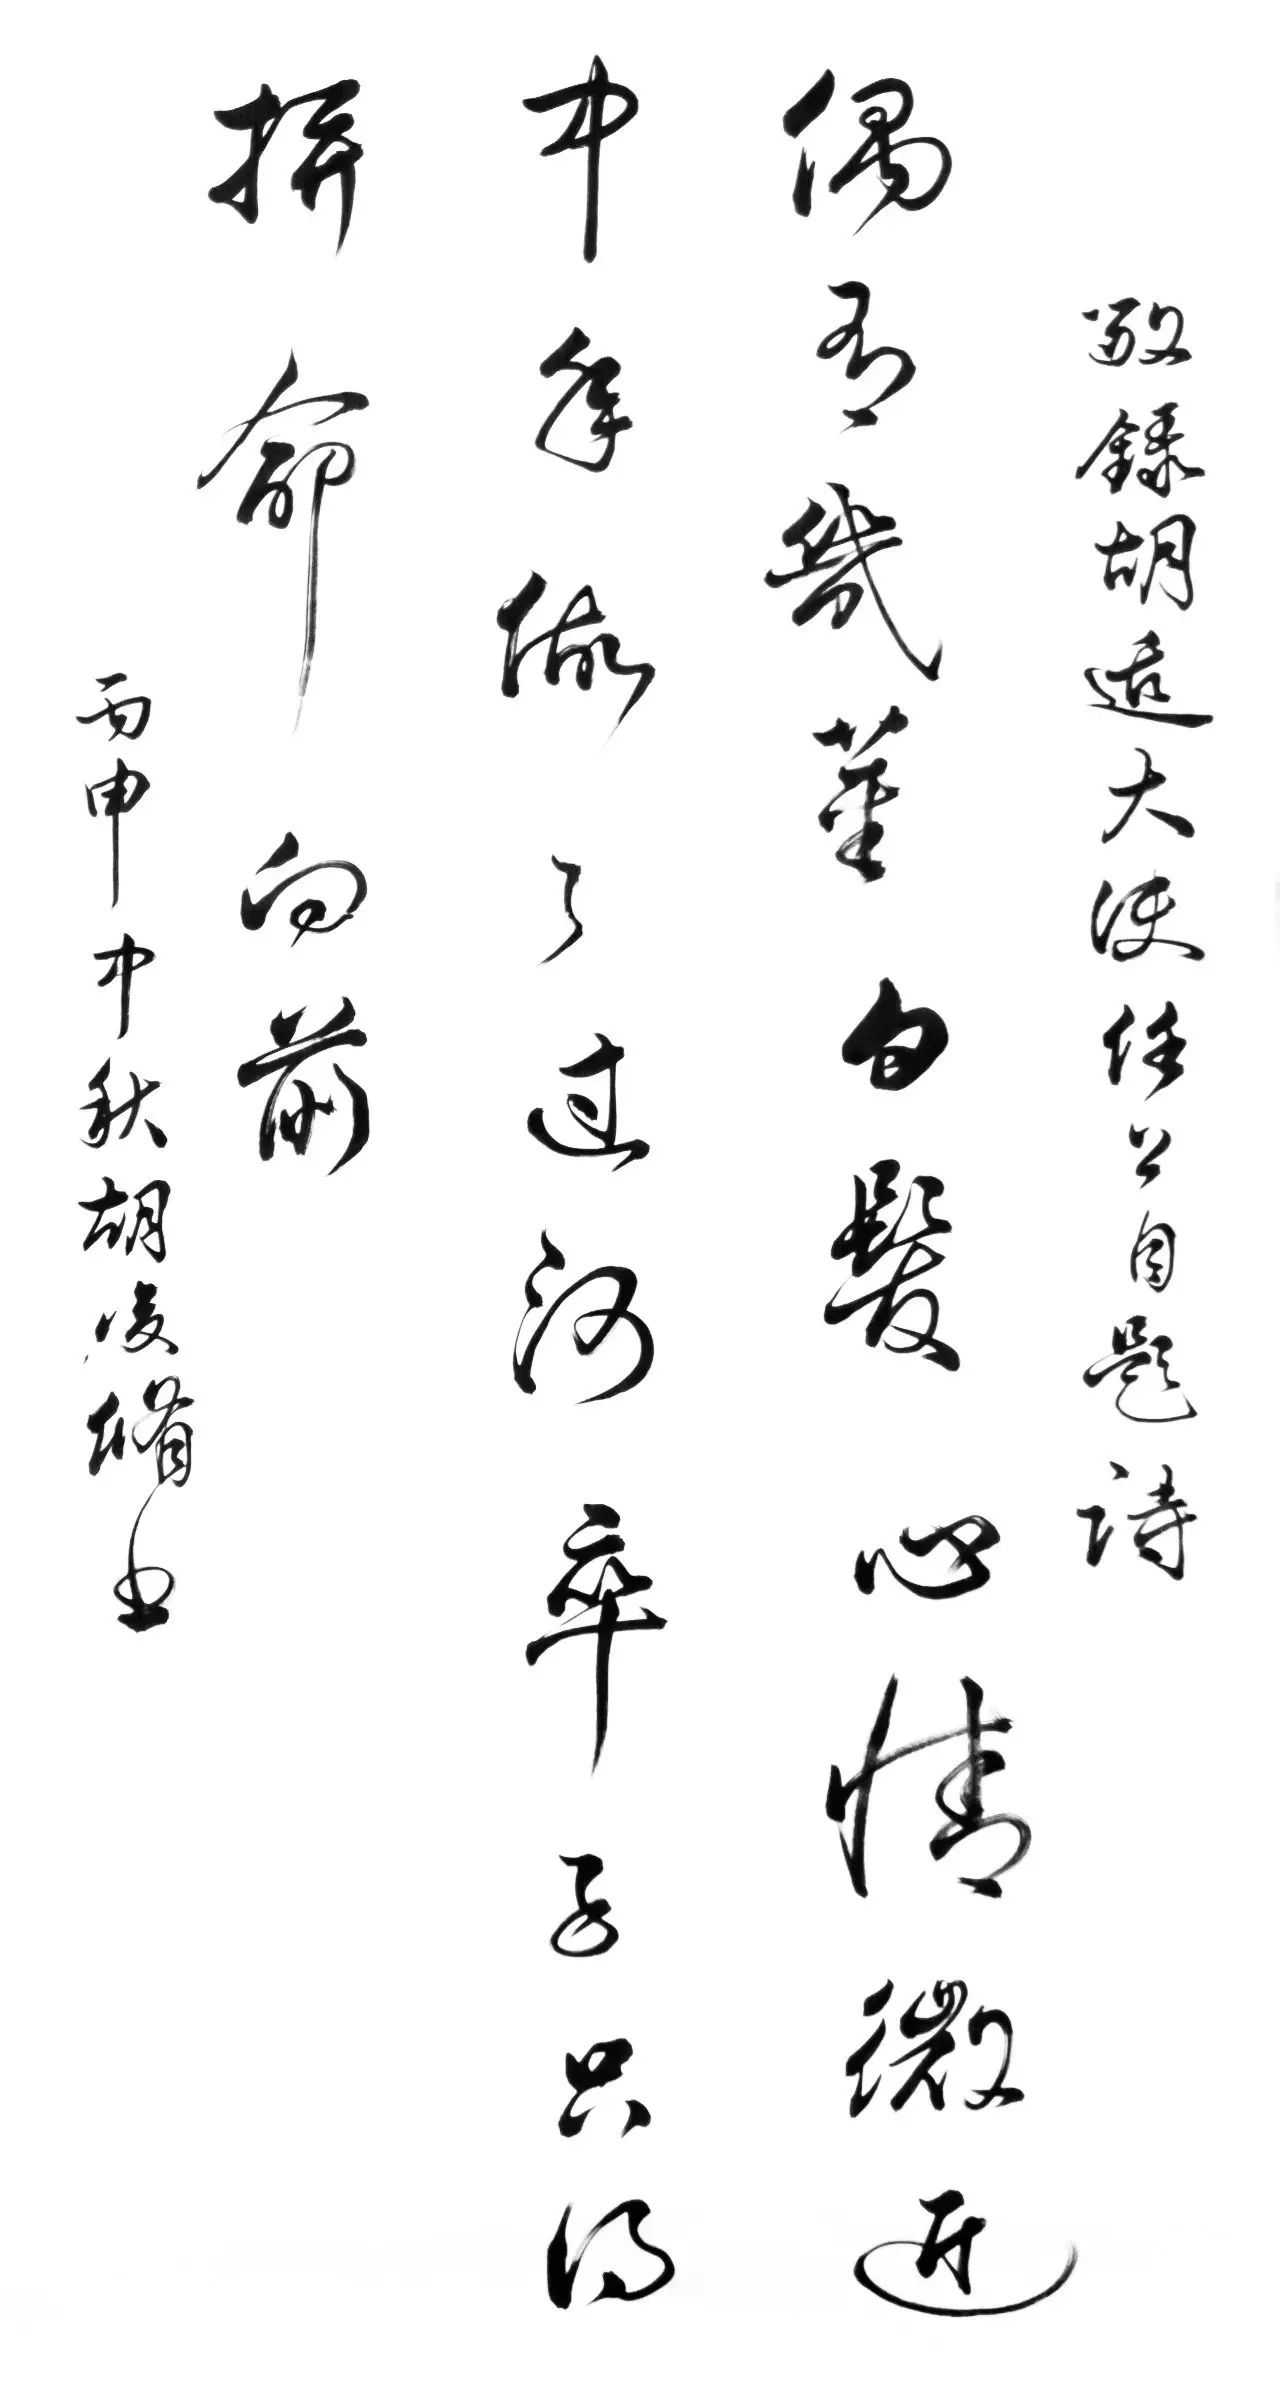 敬錄胡适大使任上自題詩
偶有幾莖白髮心情微近
中年做了过河卒子只得
拼命向前
丙申中秋胡凌脩書